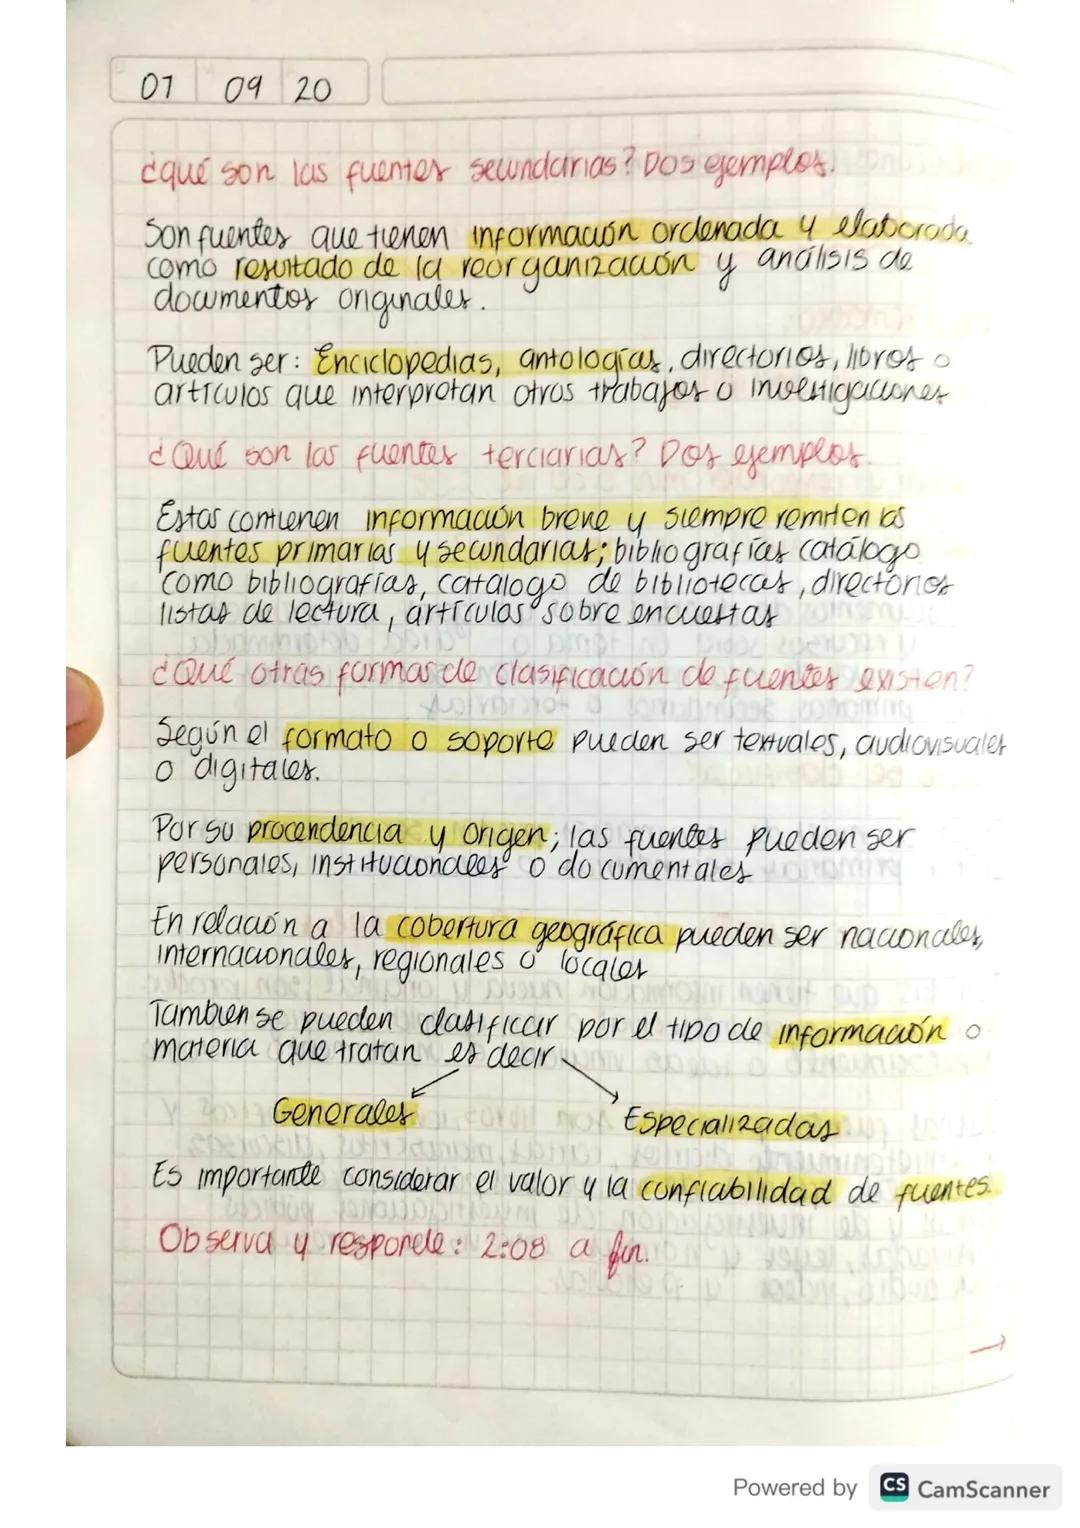 07 09 20
¿qué son las fuentes secundarias? Dos ejemplos.
Son fuentes que tienen información ordenada y elaborada
como resultado de la reorganización y análisis de
documentos originales.
Pueden ser: Enciclopedias, antologías, directorios, libros o
artículos que interpretan otros trabajos o investigaciones
¿Qué son las fuentes terciarias? Dos ejemplos.
Estas contienen información breve y siempre remiten las
fuentes primarias y secundarias; bibliografías catálogo
como bibliografías, catalogo de bibliotecas, directorios
listas de lectura, artículos sobre encuestas
¿Qué otras formas de clasificación de fuentes existen?
Según el formato o soporte pueden ser textuales, audiovisuales
o digitales.
Por su procendencia y origen; las fuentes pueden ser
personales, institucionales o documentales
En relación a la cobertura geográfica pueden ser nacionales,
internacionales, regionales o locales
Tambien se pueden clasificar por el tipo de información o
materia que tratan es decir
Generales Especializadas
Es importante considerar el valor y la confiabilidad de fuentes.
Observa y responde: 2:08 a fin.
Powered by CS CamScanner